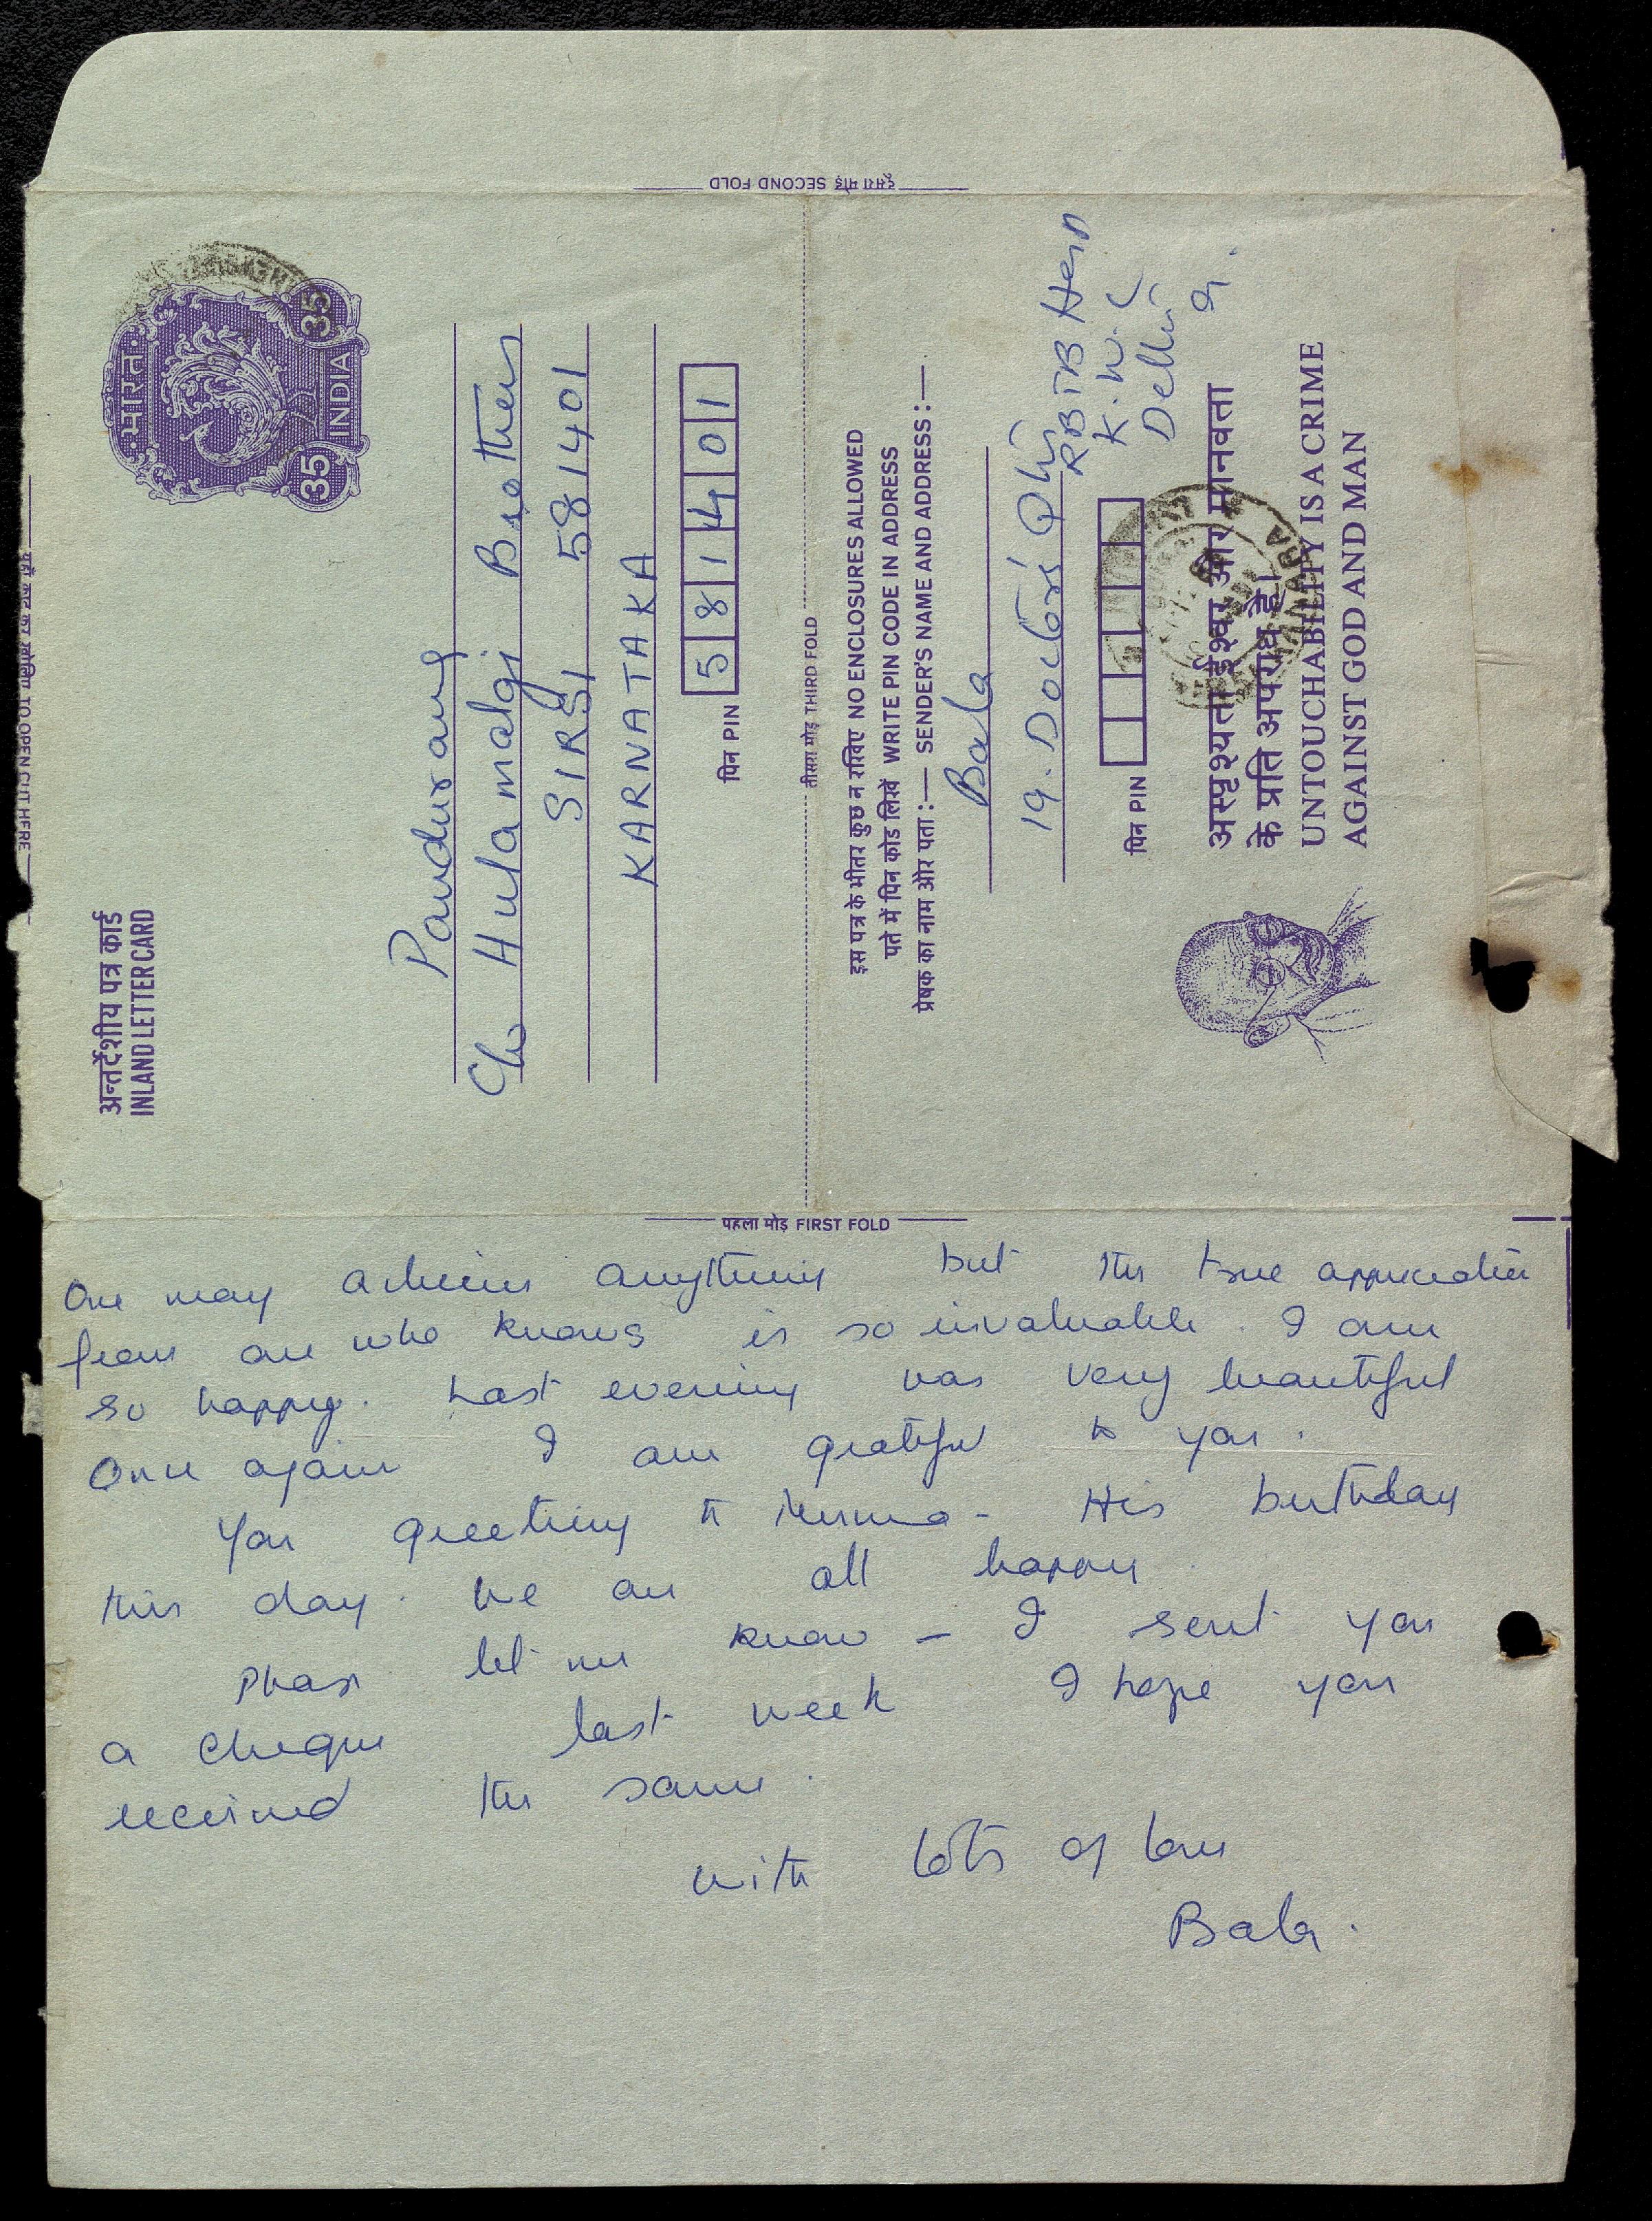 दूसरा मोड़ SECOND FOLD
यहाँ काट कर खोलिए TO OPEN CUT HERE
अन्तर्देशीय पत्र कार्ड
INLAND LETTER CARD
भारत
35 INDIA 35
Pandurang
C/o Hulamalgi Brothers
SIRSI 581401
KARNATAKA
पिन PIN 581401
तीसरा मोड़ THIRD FOLD
इस पत्र के भीतर कुछ न रखिए NO ENCLOSURES ALLOWED
पते में पिन कोड लिखें WRITE PIN CODE IN ADDRESS
प्रेषक का नाम और पता :— SENDER'S NAME AND ADDRESS :—
Bala
19. Doctors'
RBTB
K.W.C
Delhi
9.
पिन PIN
अस्पृश्यता ईश्वर और मानवता
के प्रति अपराध है।
UNTOUCHABILITY IS A CRIME
AGAINST GOD AND MAN
पहला मोड़ FIRST FOLD
One may achieve anything but the true appreciation
from one who knows is so invaluable. I am
so happy. Last evening was very beautiful
Once again I am grateful to you.
Your greeting to - His birthday
this day. We are all happy.
Please let me know - I sent you
a cheque last week I hope you
received the same.
with lots of love
Bala.